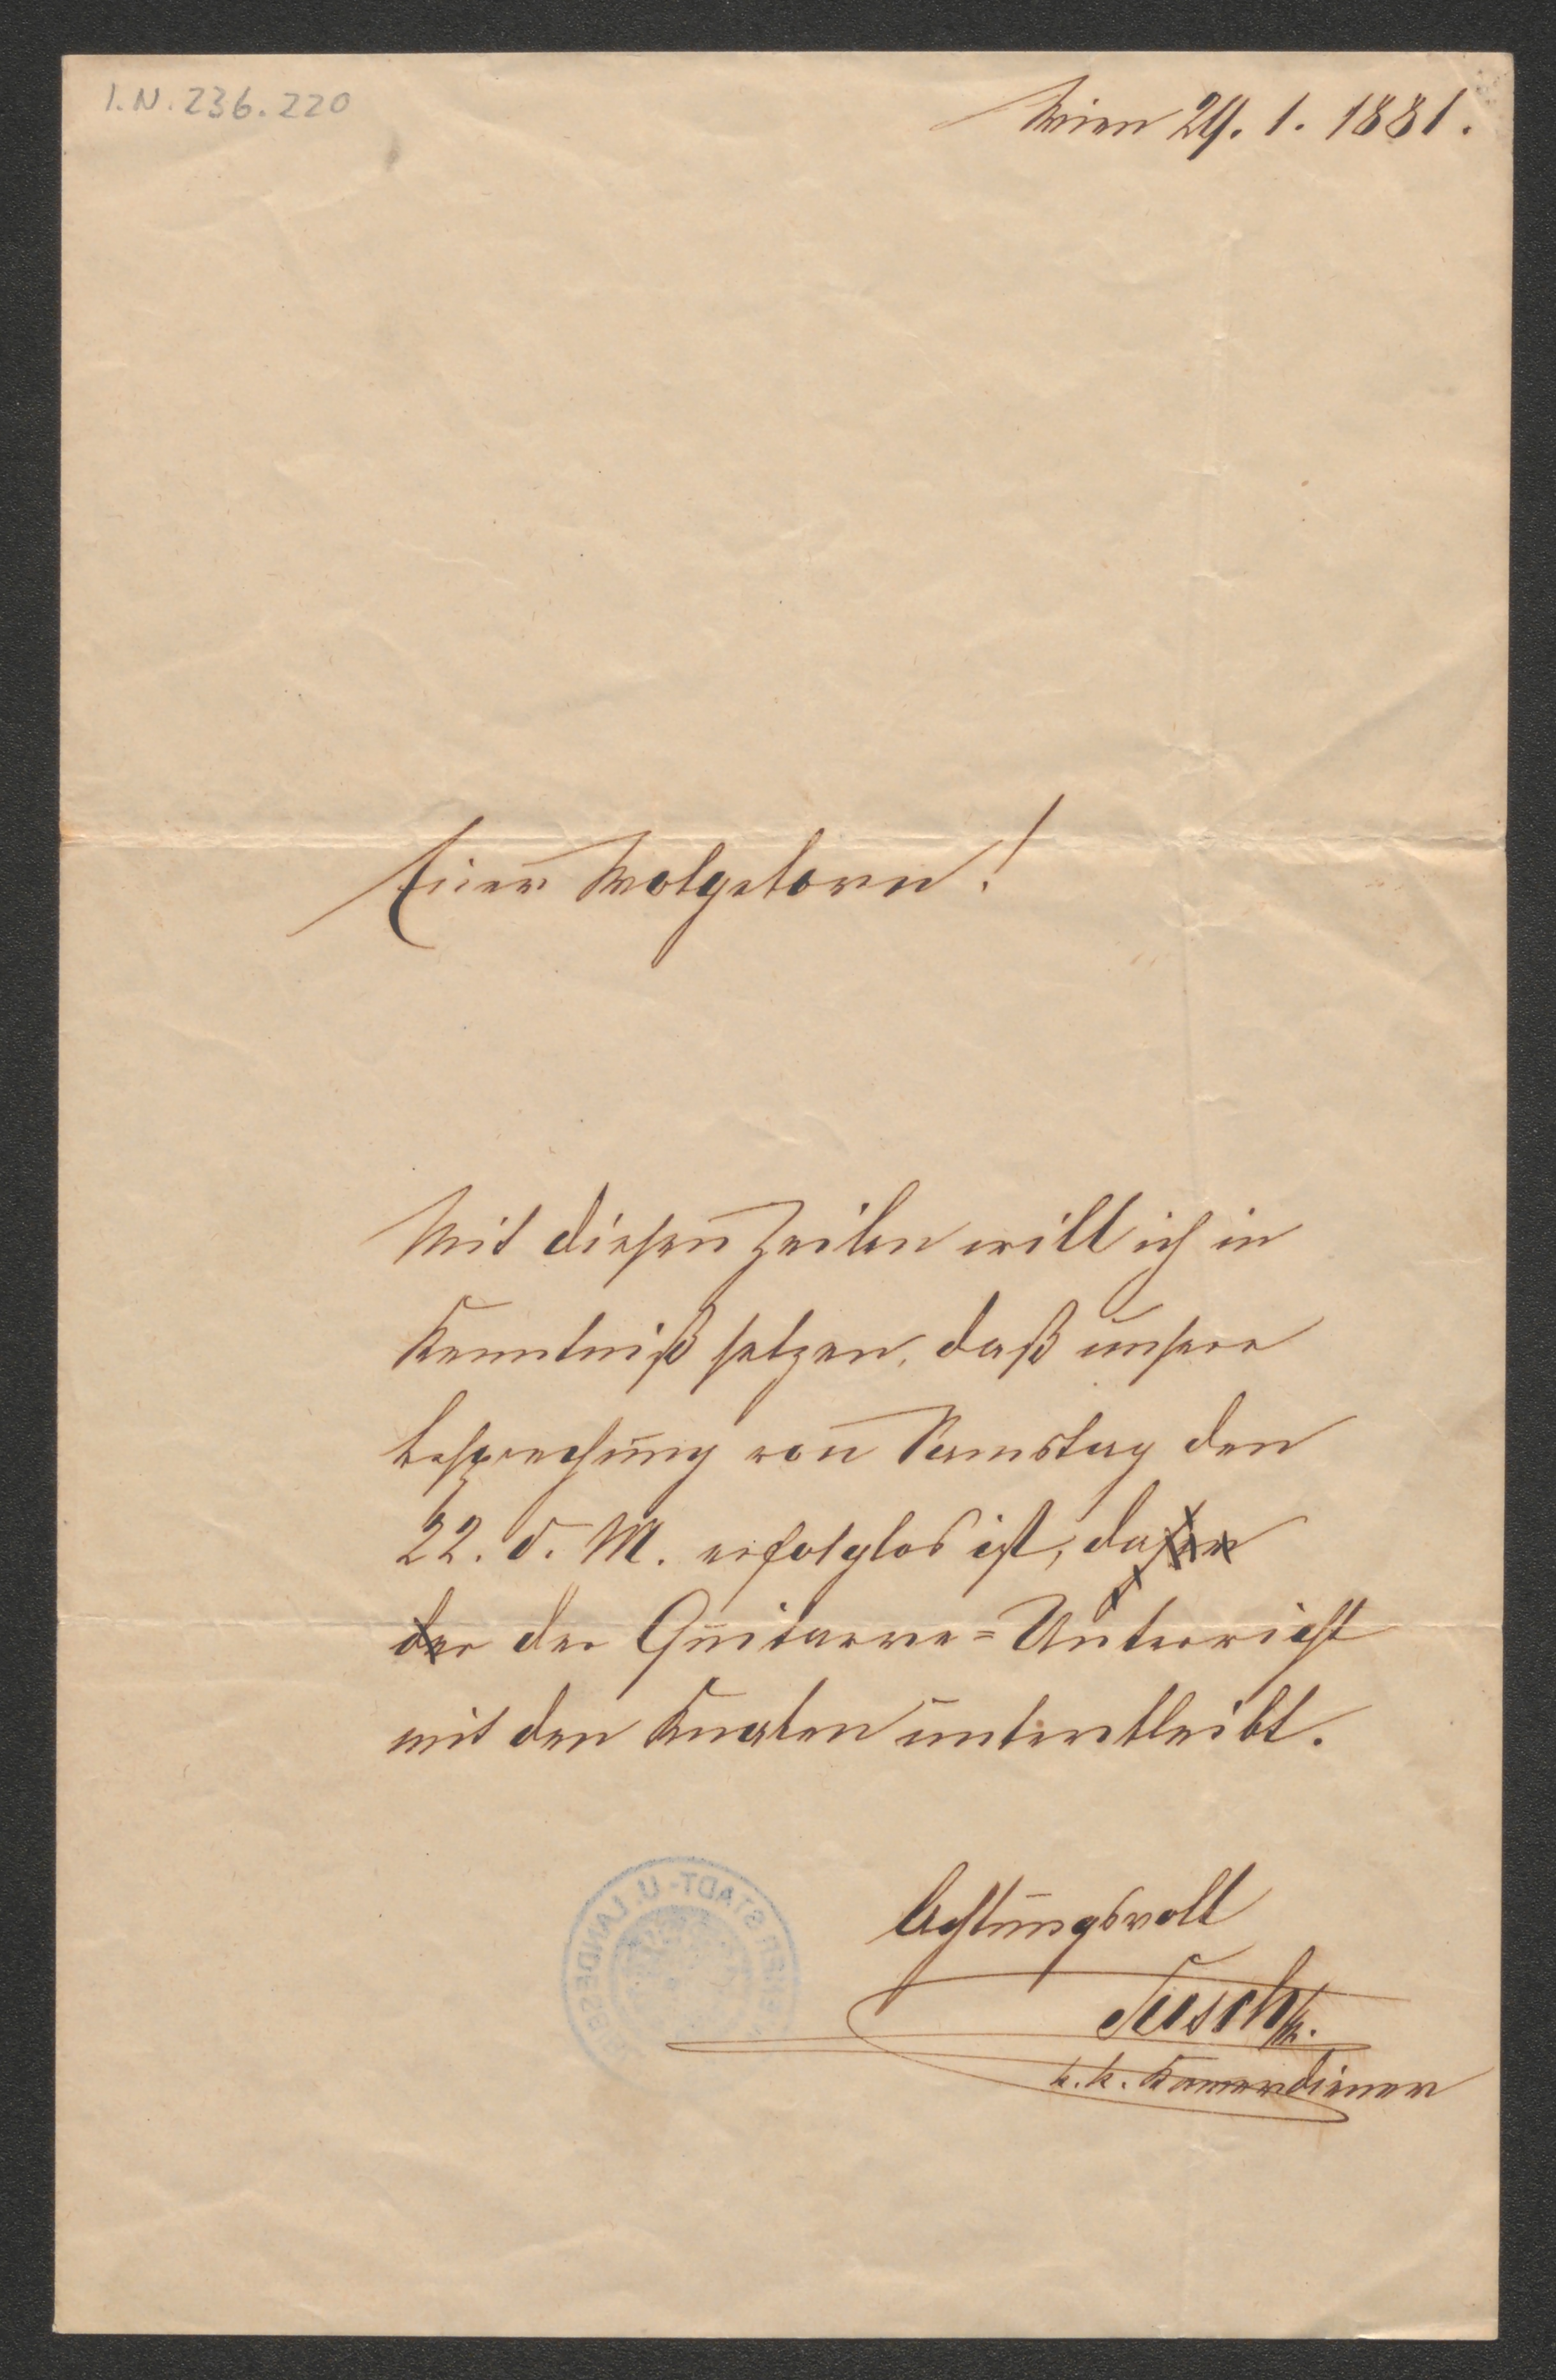 I.N. 236.220
Wien 29. 1. 1881.
Euer Wolgeborn!
Mit diesen Zeilen will ich in
Kenntniß setzen, daß unsere
besprechung von Samstag den
22. d. M. erfolglos ist, da
der der Guitarre=Unterricht
mit den Knaben unterbleibt.
Achtungsvoll
k.k. Kamerdiener
STADT- U. LANDES